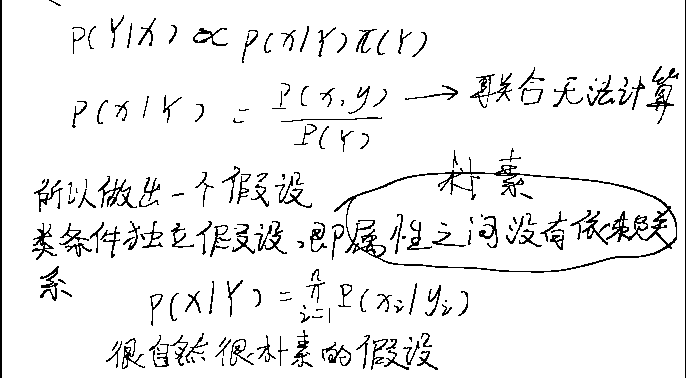 P(Y|X) ∝ P(x|Y)π(Y)
P(x|Y) = P(x,y)/P(Y) → 联合无法计算
所以做出一个假设 朴素
类条件独立假设,即属性之间没有依赖关
系
P(X|Y) = ∏_{i=1}^{n} P(x_i|y_i)
很自然很朴素的假设